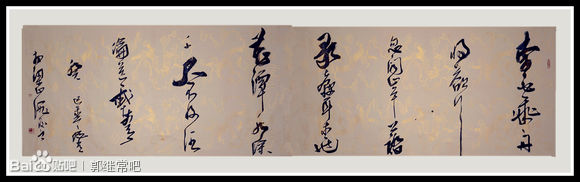 李白乘舟
将欲行
忽闻岸上踏
歌聲桃
花潭水深
千尺不及汪
倫送我情
癸巳
Bai 贴吧 | 郭维常吧